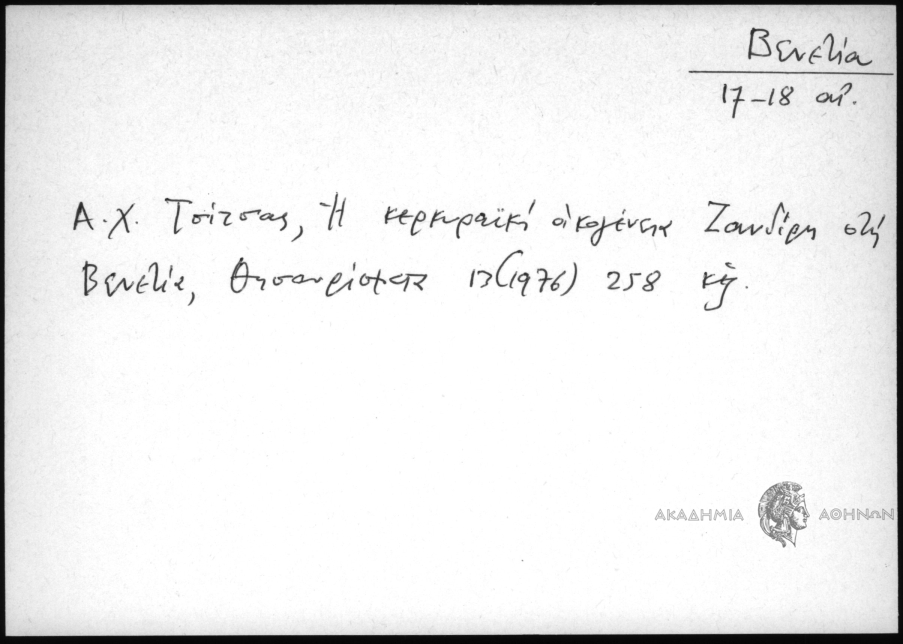 Βενετία
17–18 αἰ.
Α. Χ. Τσίτσας, Ἡ κερκυραϊκή οἰκογένεια Ζανδίρη στή
Βενετία, Θησαυρίσματα 13 (1976) 258 κἑ.
ΑΚΑΔΗΜΙΑ ΑΘΗΝΩΝ